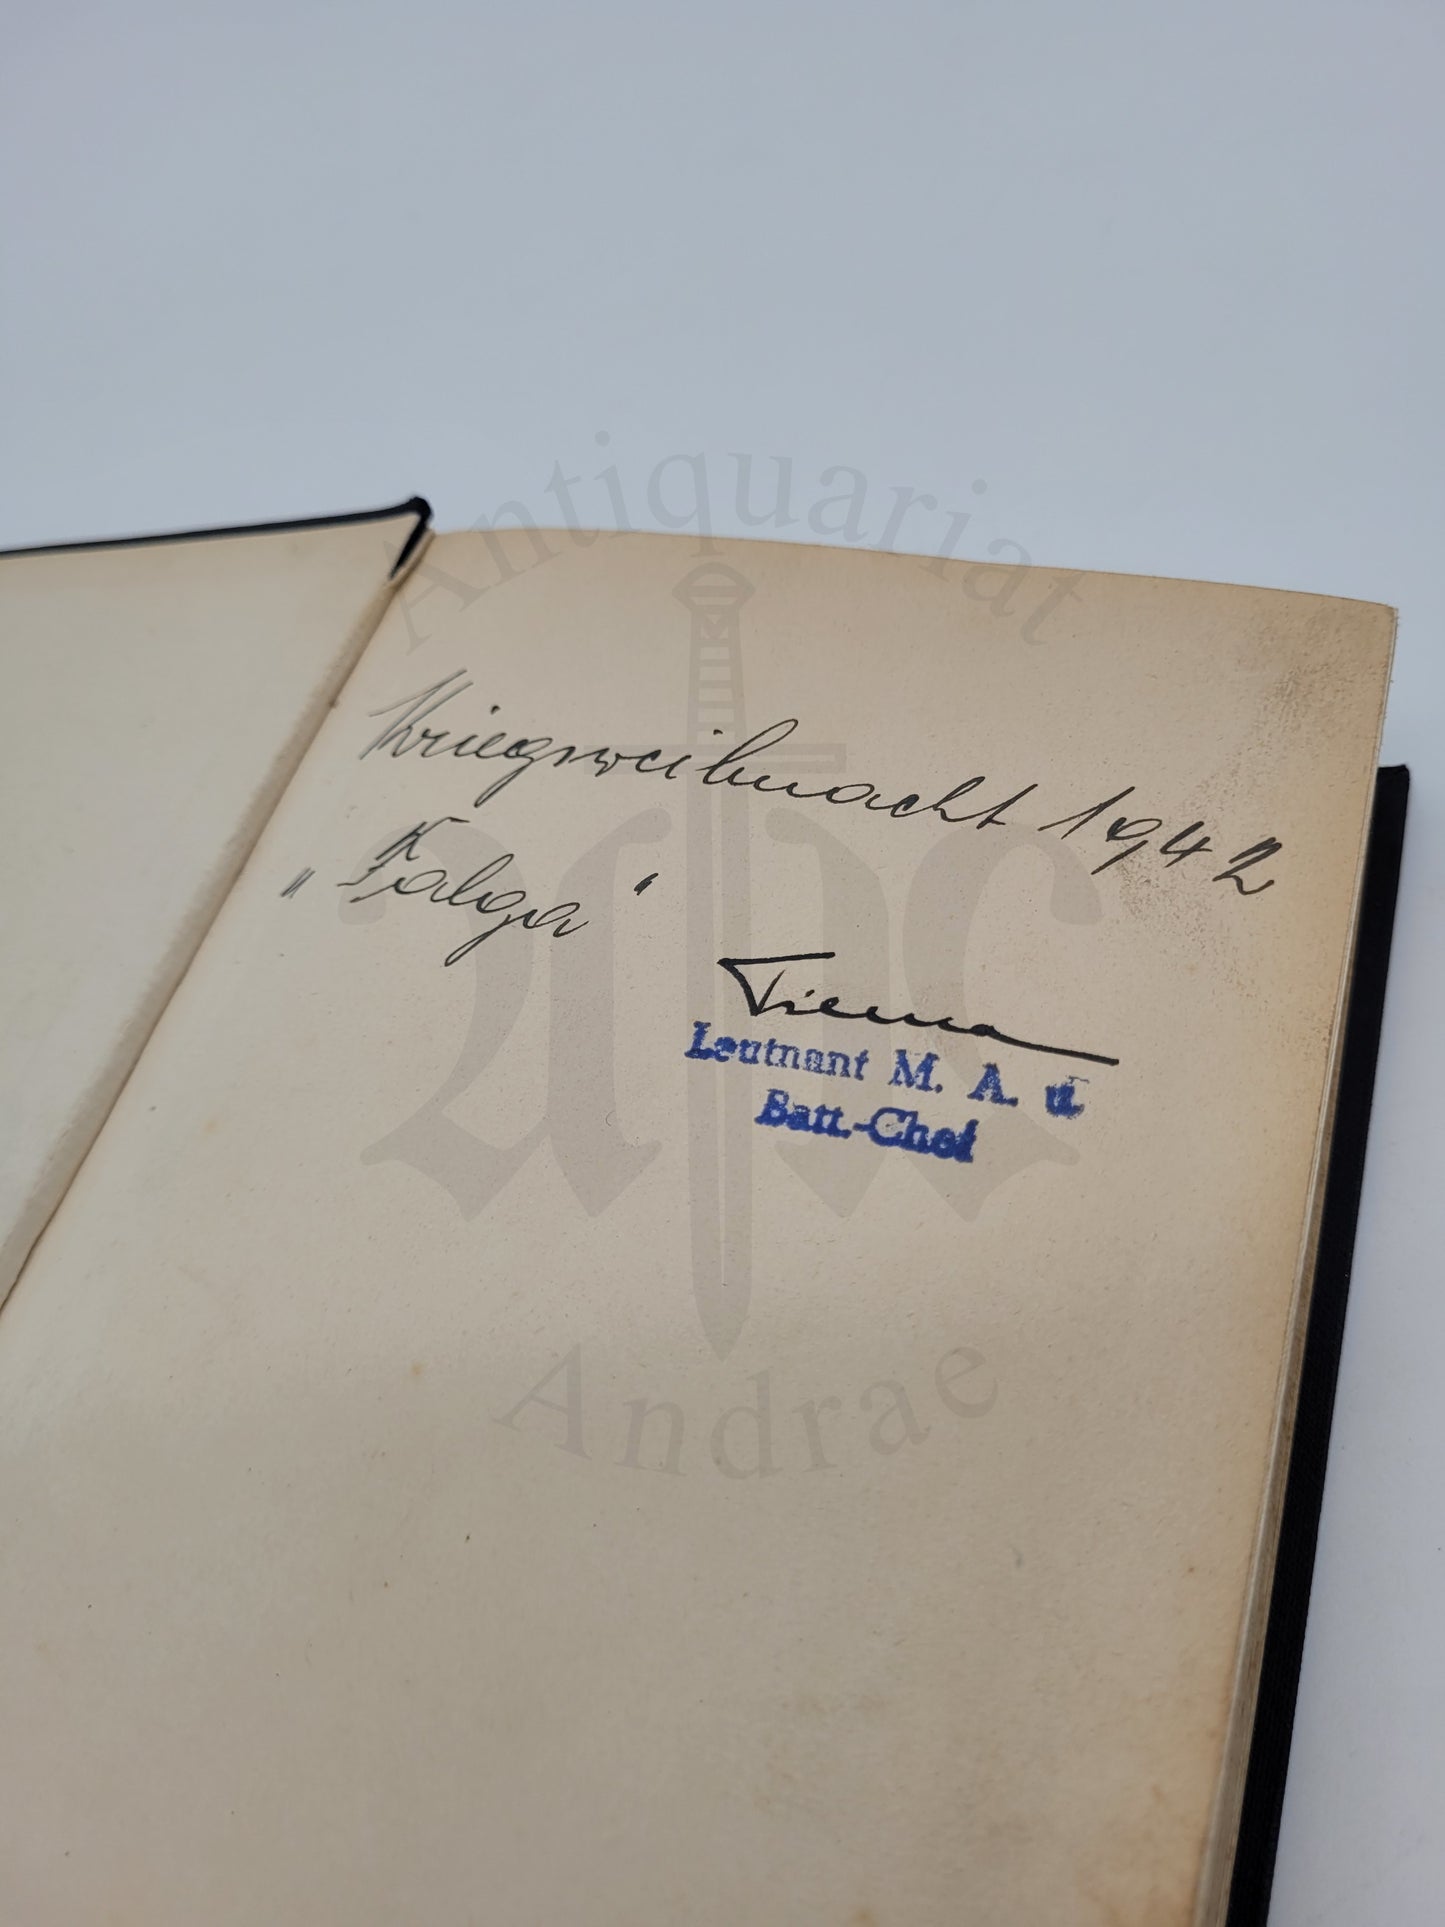 Antiquariat
Kriegsweihnacht 1942
„Falga“
Leutnant M. A. u.
Batt.-Chef
Andrae